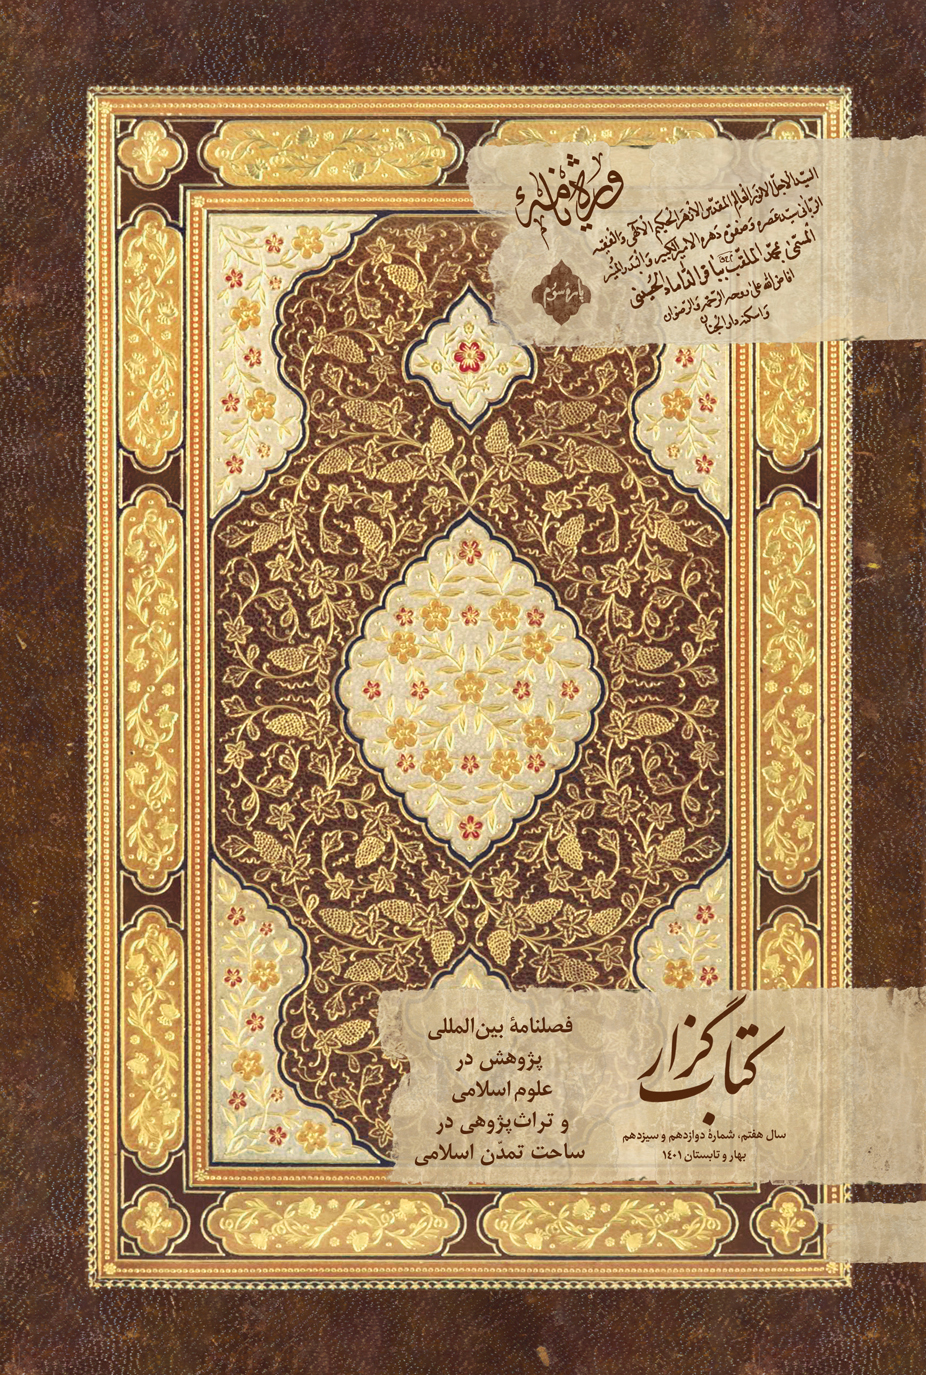 ویژه‌نامهٔ
پارهٔ سوم
السید الاجل الانور العالم المقدس الازهر الحکیم الالهی والفقیه
الربانی سید عصره وصفوة دهره الامیر الکبیر والبدر المنیر
المسمی بمحمد الملقب بباقر الداماد الحسینی
افاض الله علی روحه الرحمة والرضوان
واسکنه دار الجنان
کتاب گزار
سال هفتم، شمارهٔ دوازدهم و سیزدهم
بهار و تابستان ۱۴۰۱
فصلنامهٔ بین‌المللی
پژوهش در
علوم اسلامی
و تراث‌پژوهی در
ساحت تمدّن اسلامی